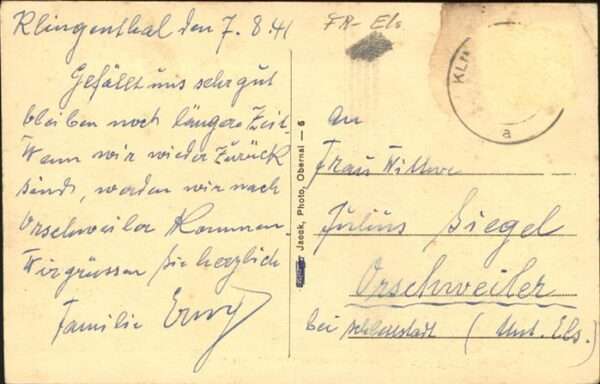 Klingenthal den 7.8.41
Gefällt uns sehr gut
bleiben noch längere Zeit.
Wenn wir wieder Zurück
sind, werden wir nach
Orschweiler Kommen
Wir grüssen Sie herzlich
Familie
FR- Els
Jaeck, Photo, Obernai — 6
KLIN
a
An
Frau Wittwe
Julius Siegel
Orschweiler
bei Schlettstadt (Unt. Els.)